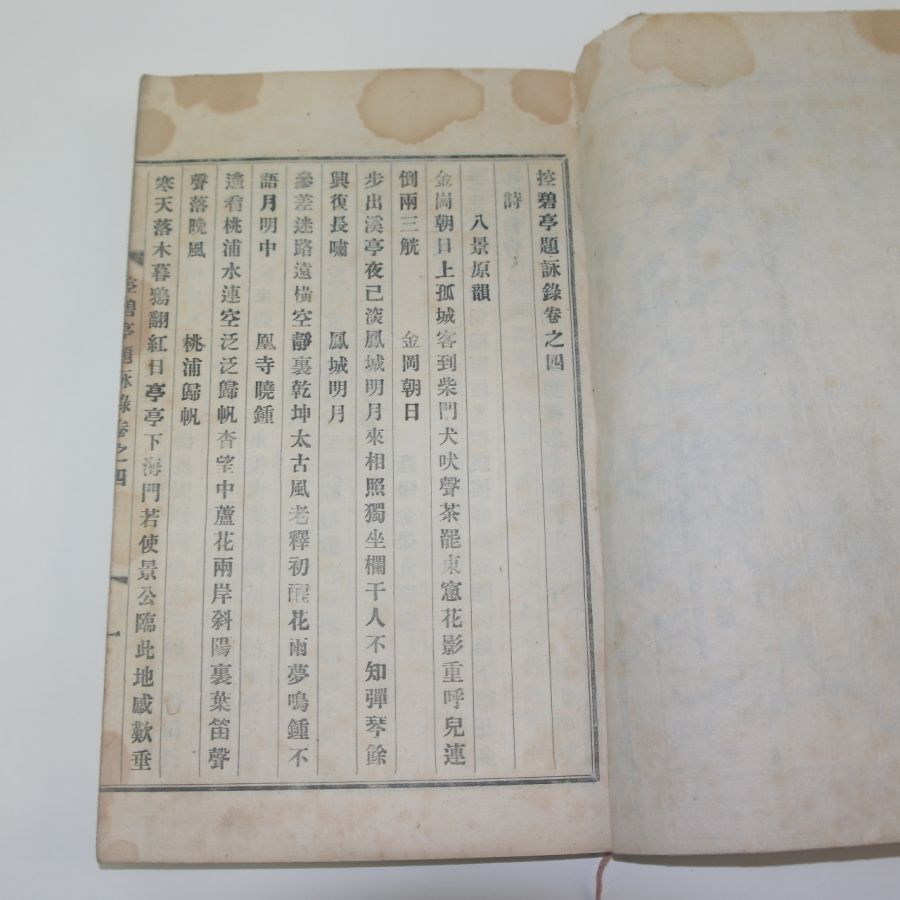 控碧亭題詠錄卷之四
詩
八景原韻
金崗朝日上孤城客到柴門犬吠聲茶罷東窻花影重呼兒連
倒兩三觥 金岡朝日
步出溪亭夜已淡鳳城明月來相照獨坐欄干人不知彈琴餘
興復長嘯 鳳城明月
參差迷路遠橫空靜裏乾坤太古風老釋初醒花雨夢鳴鍾不
語月明中 凰寺曉鍾
遙看桃浦水連空泛泛歸帆杳望中蘆花兩岸斜陽裏葉笛聲
聲落晚風 桃浦歸帆
寒天落木暮鴉翻紅日亭亭下海門若使景公臨此地感歎垂
控碧亭題詠錄卷之四 一